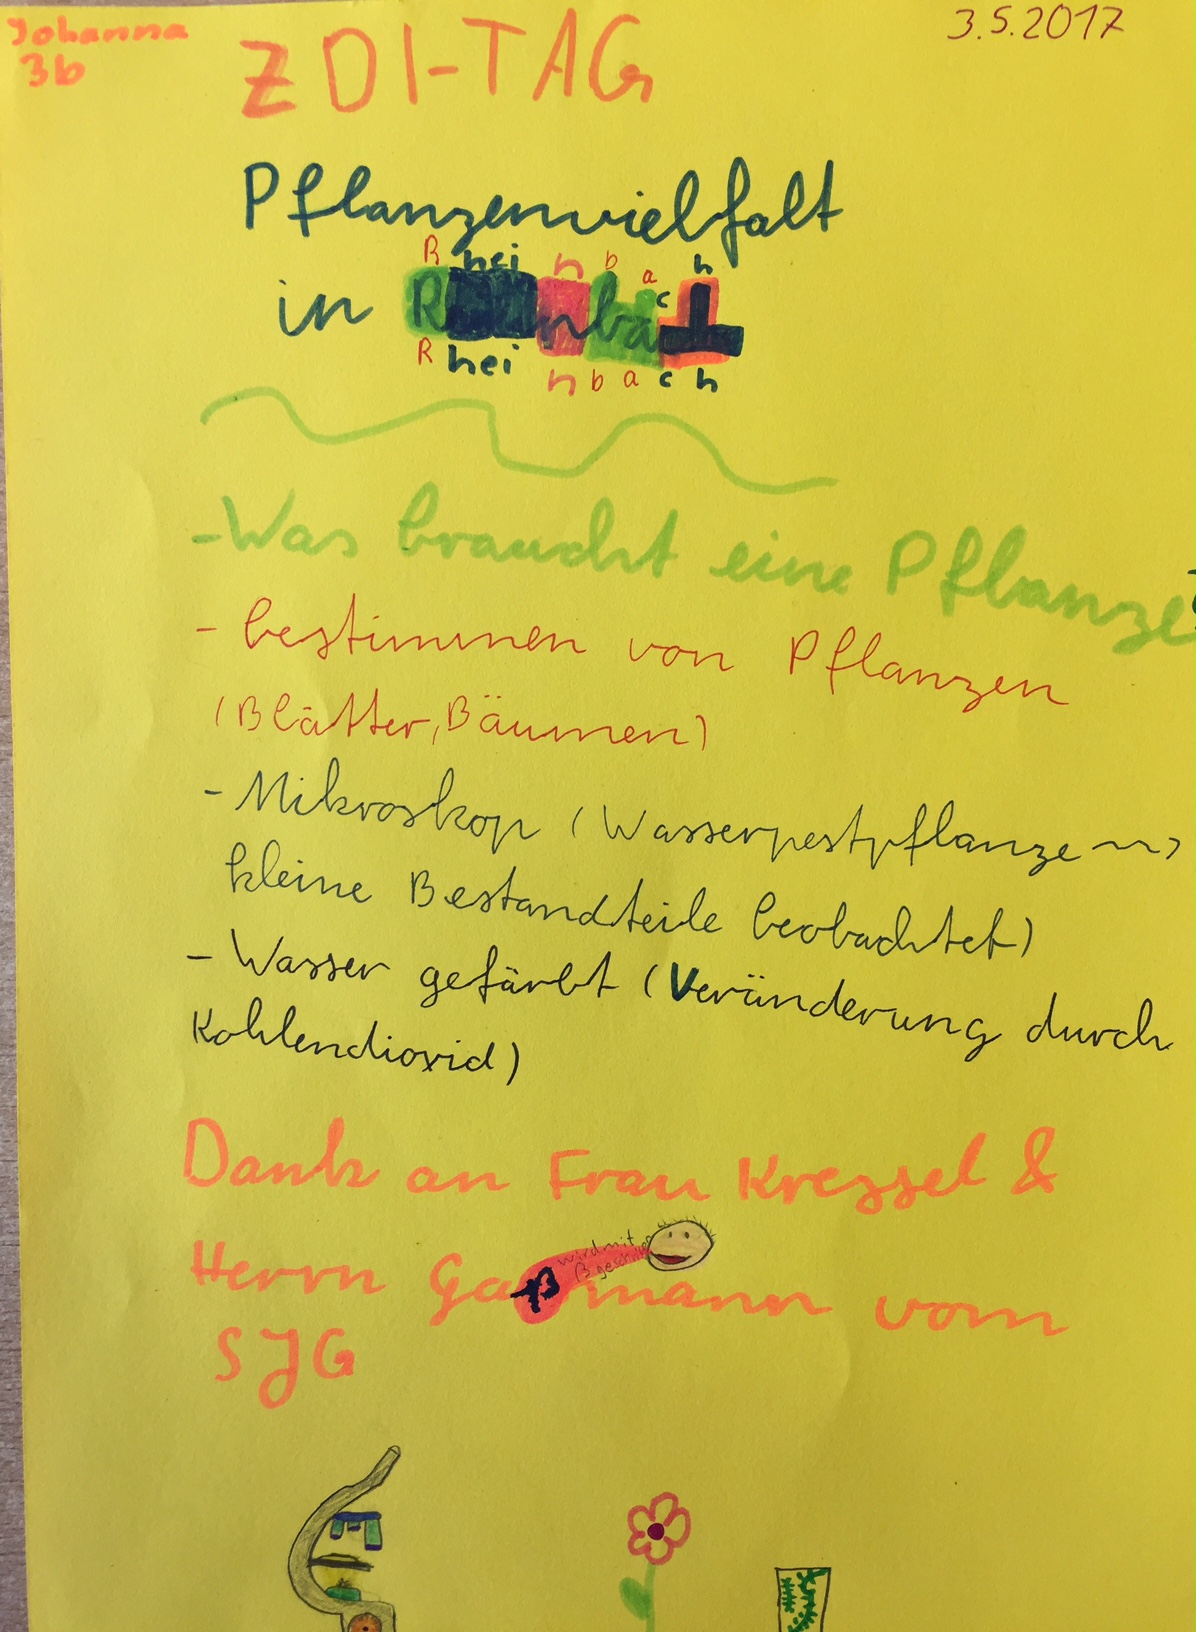 Johanna
3b
3.5.2017
ZDI-TAG
Pflanzenvielfalt
R hei n b a c h
in Rheinbach
R hei n b a c h
-Was braucht eine Pflanze?
- bestimmen von Pflanzen
(Blätter, Bäumen)
- Mikroskop (Wasserpestpflanze ~>
kleine Bestandteile beobachtet)
- Wasser gefärbt (Veränderung durch
Kohlendioxid)
Dank an Frau Kressel &
wird mit
ß geschrieben
Herrn Gaßmann vom
SJG